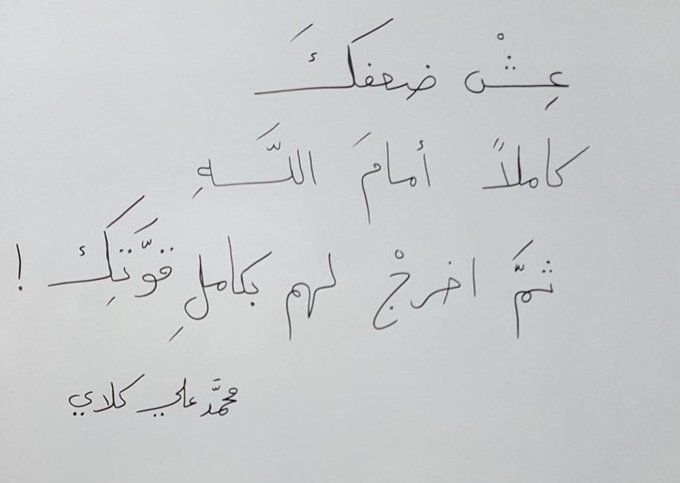 عِشْ ضعفكَ
كاملاً أمامَ اللَّهِ
ثمَّ اخرجْ لهم بكاملِ قوَّتِكَ !
محمَّد علي كلاي